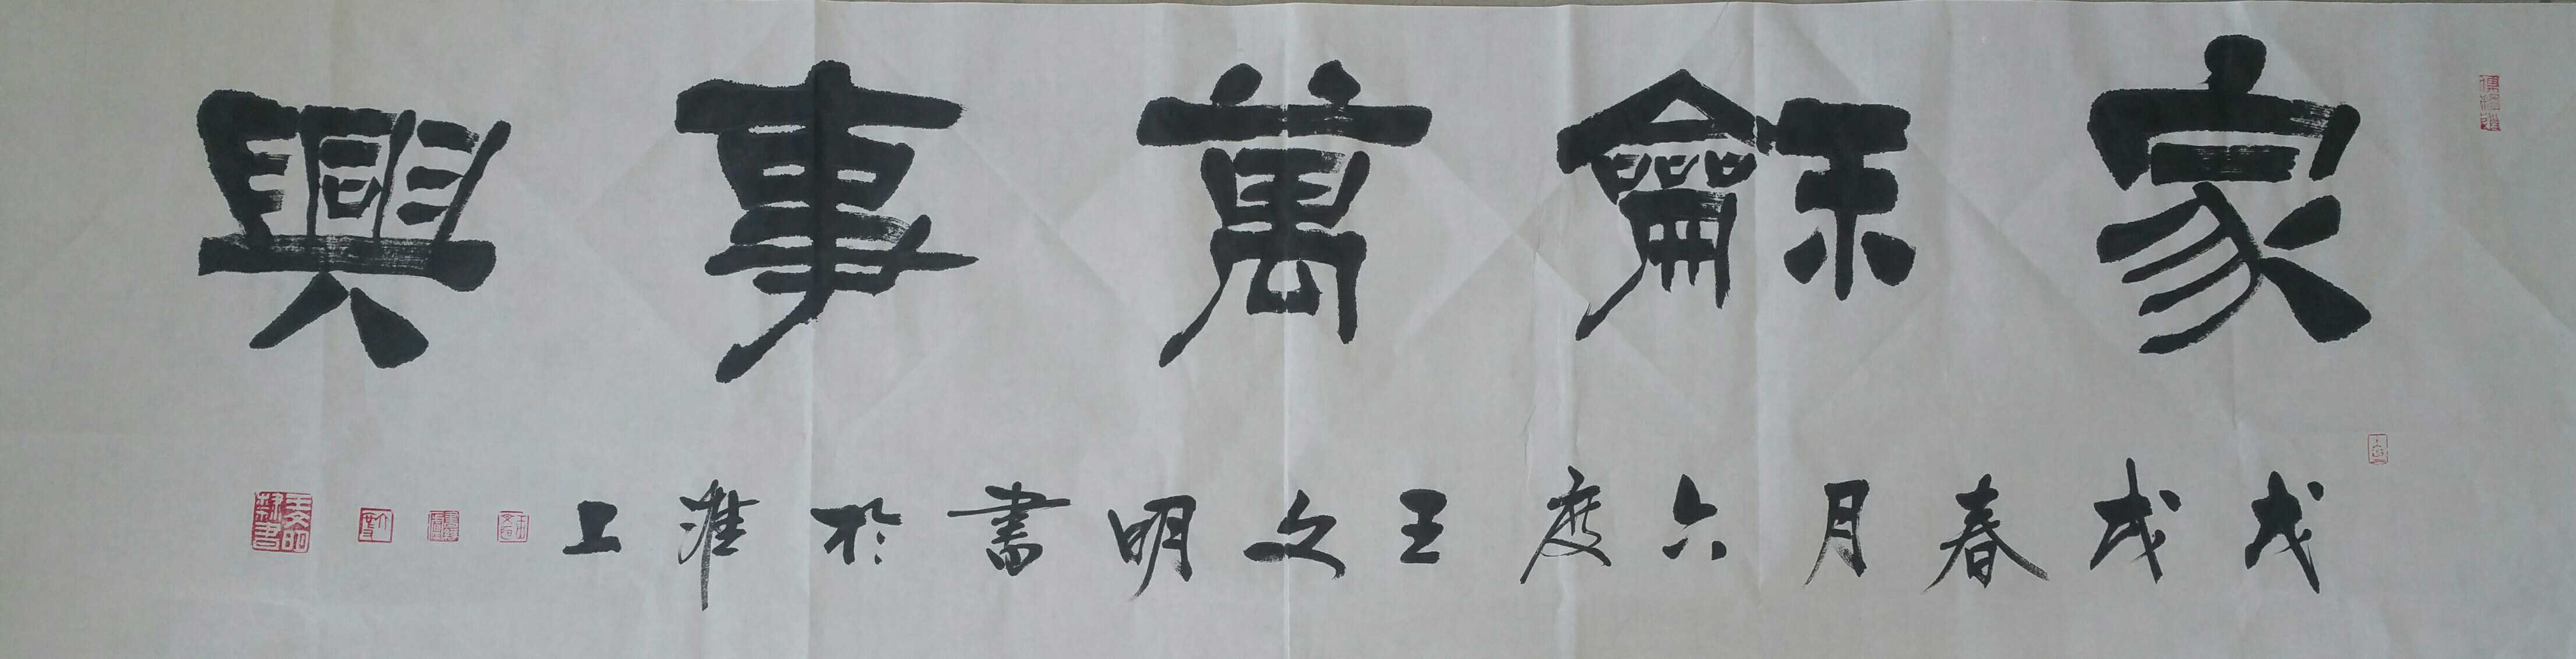 家龢萬事興
戊戌春月六度王文明書於淮上